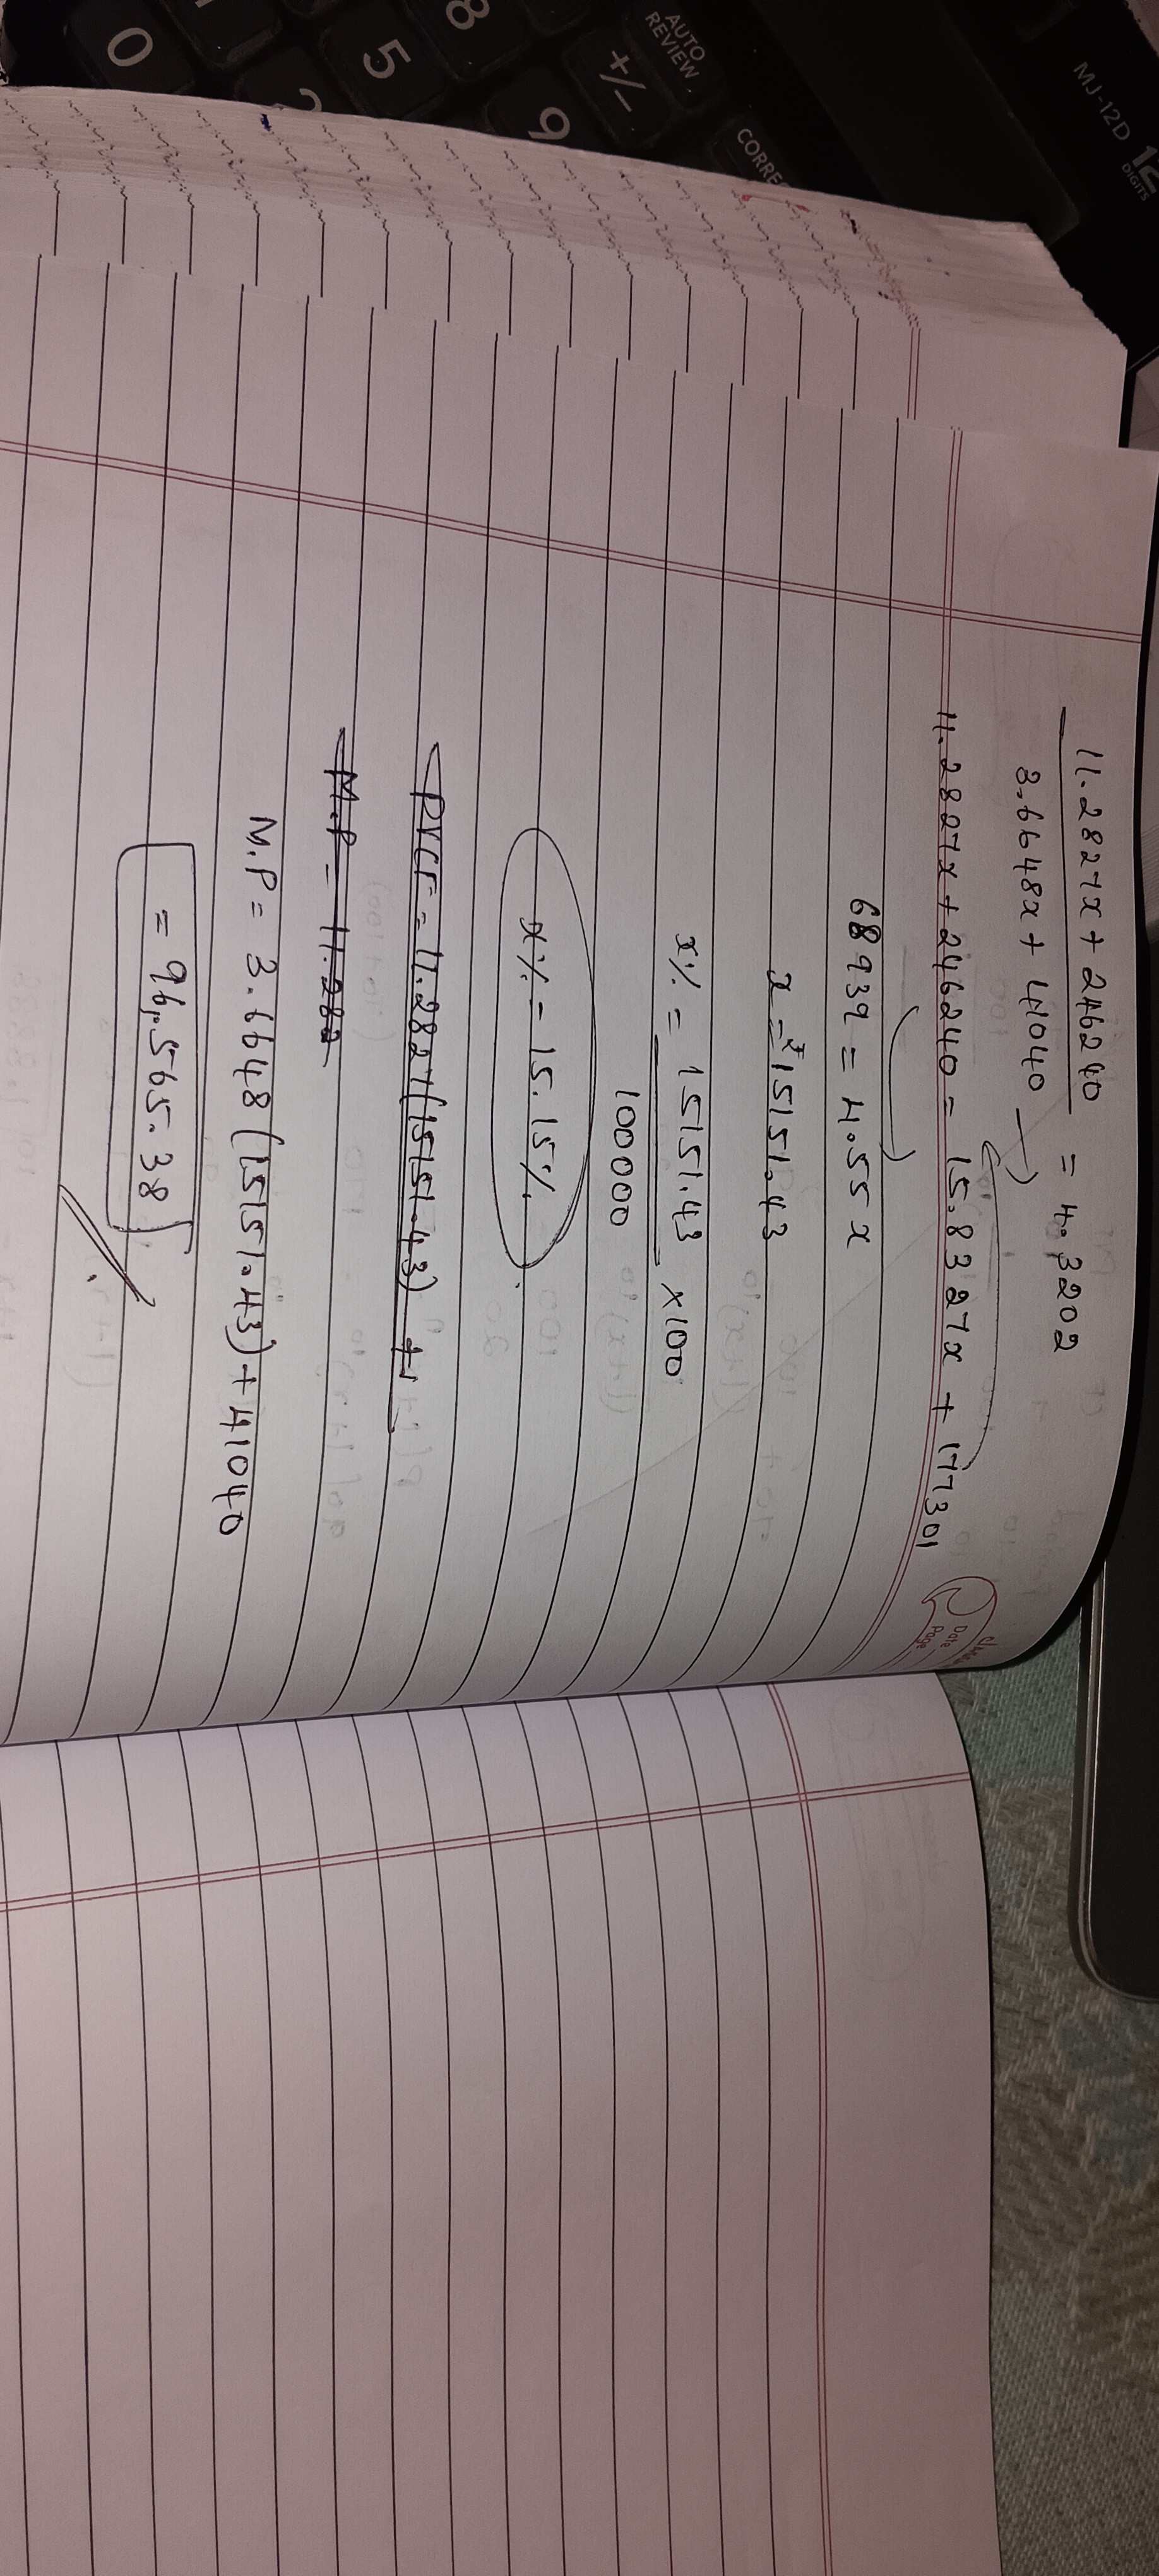 11.2827x + 246240
3.6648x + 41040
= 4.3202
11.2827x + 246240 = 15.8327x + 177301
68939 = 4.55x
x = ₹15151.43
x% = 15151.43 × 100
100000
x% = 15.15%
PVCF = 11.2827(15151.43) +
M.P = 11.282
M.P = 3.6648 (15151.43) + 41040
= 96,565.38
classmate
Date
Page
0
5
8
9
+/-
AUTO REVIEW
CORRE
MJ-12D
12
DIGITS